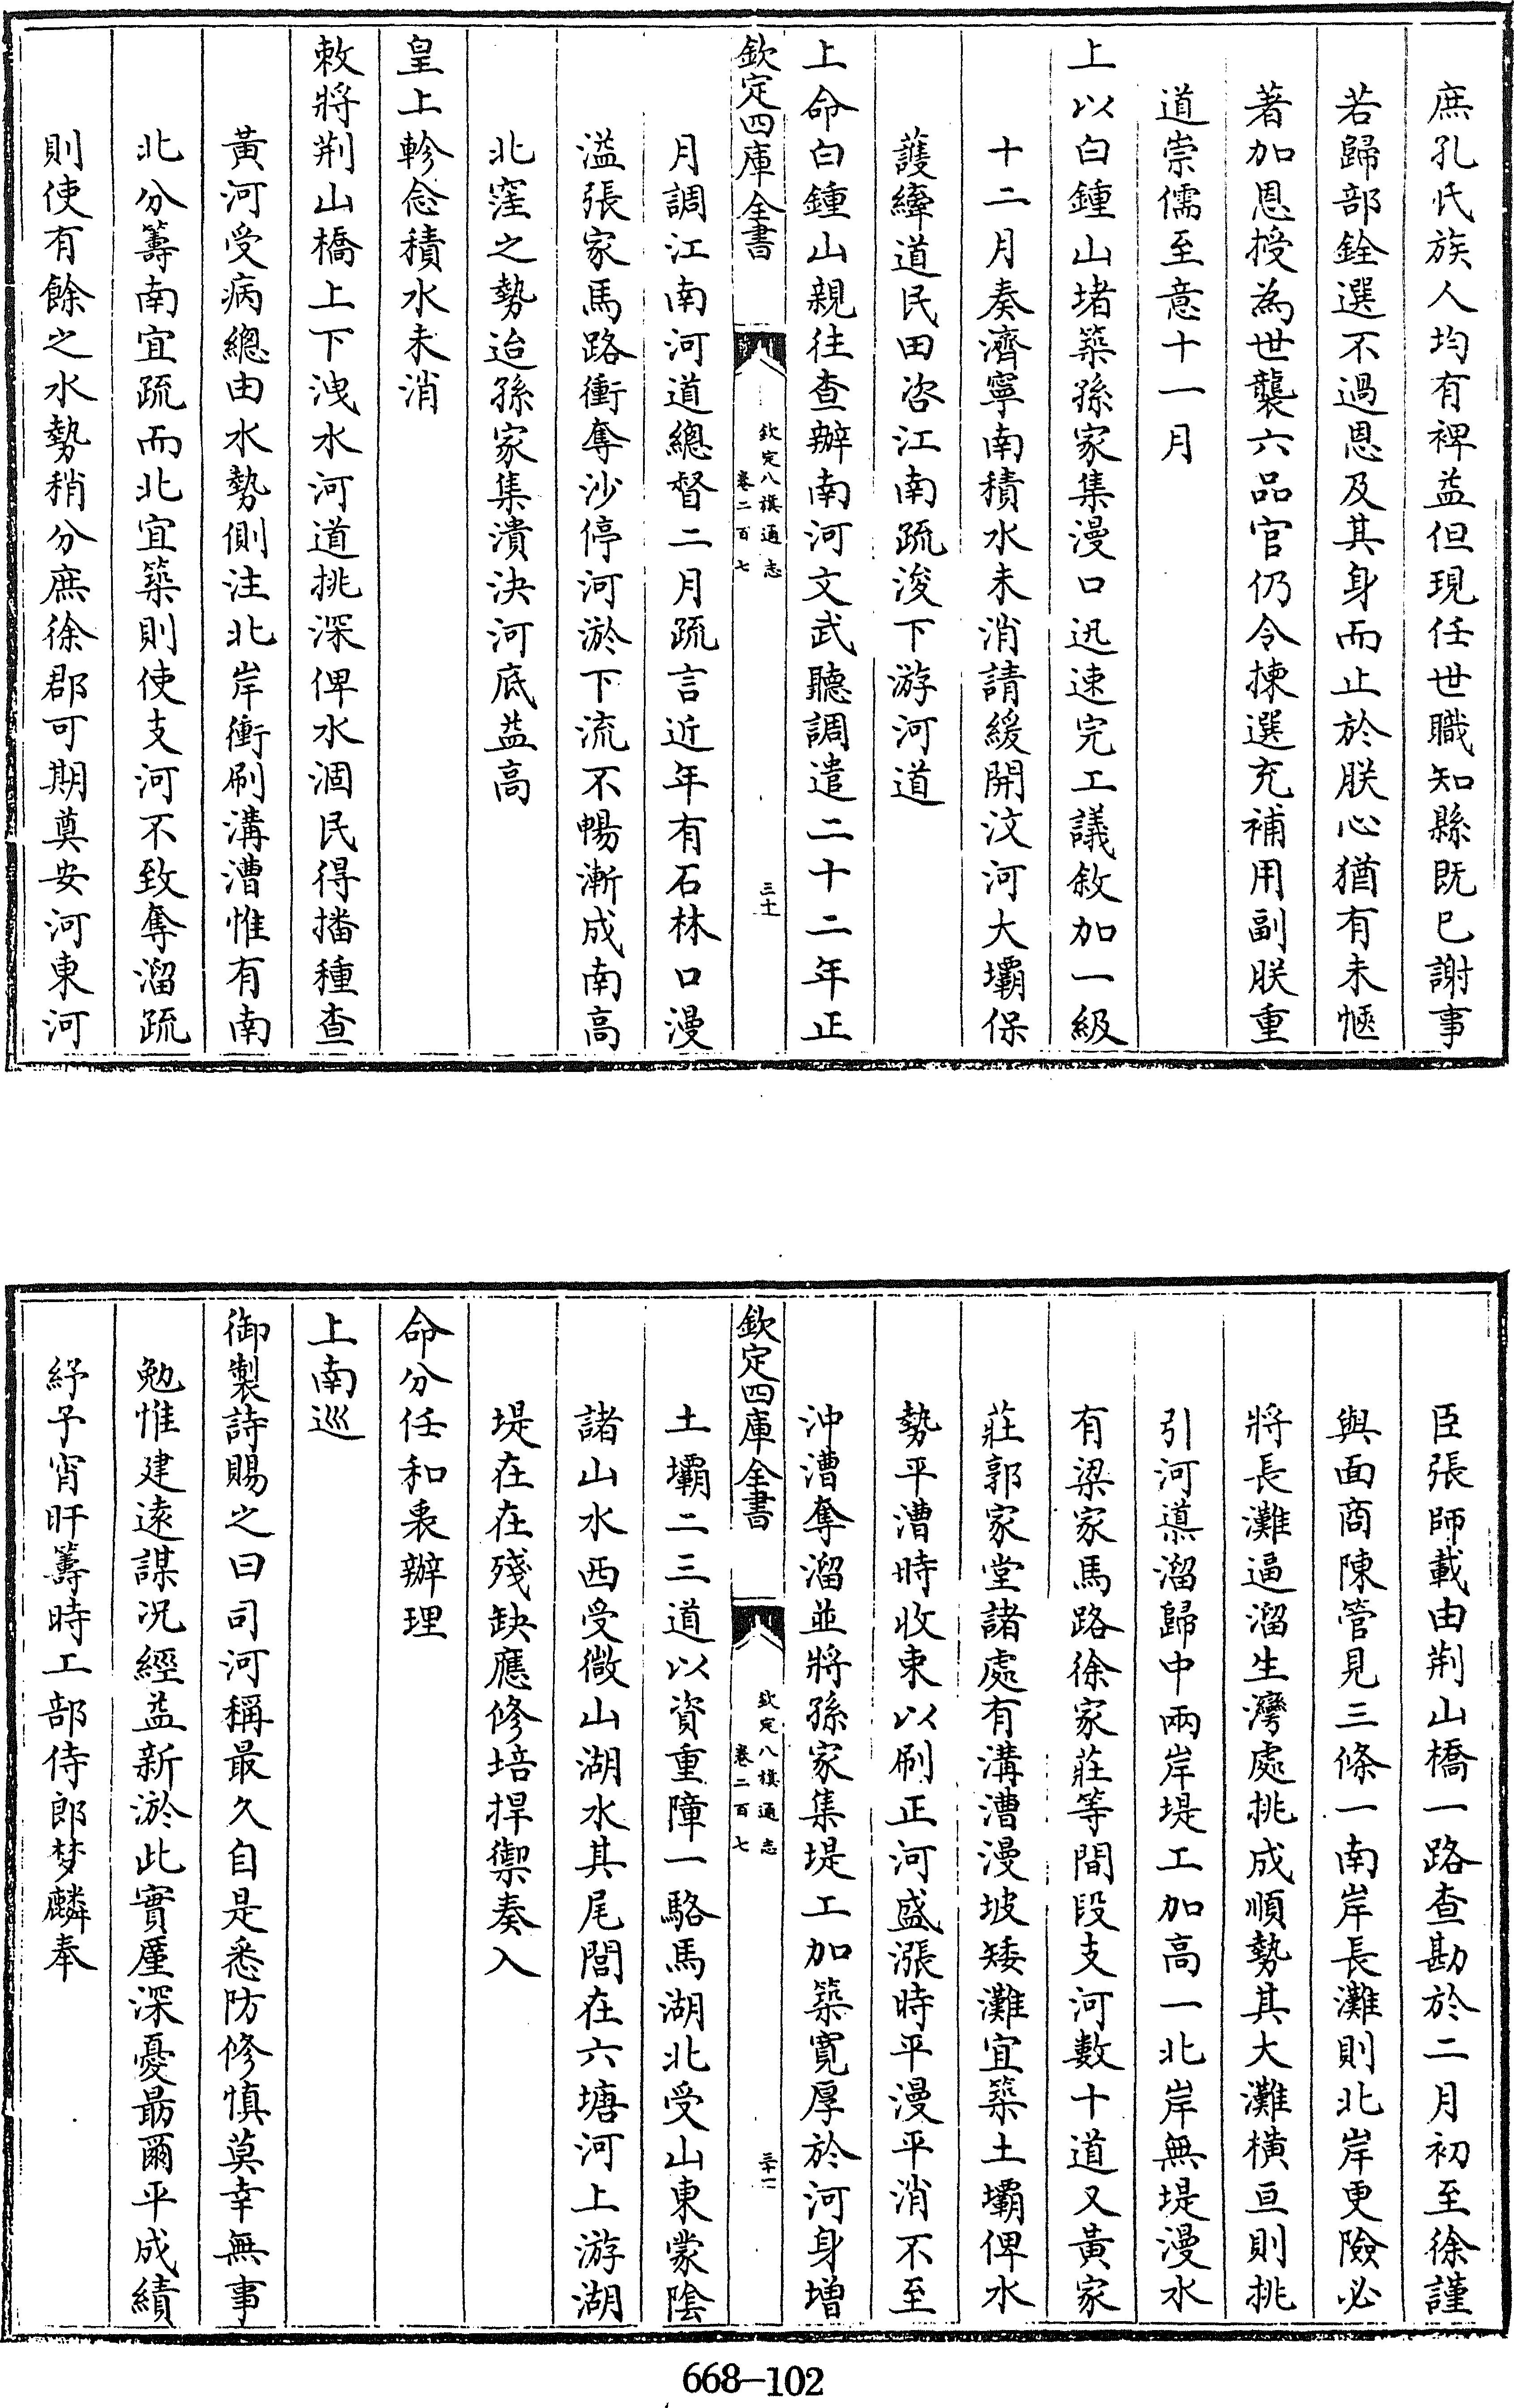 庶孔氏族人均有裨益但現任世職知縣既已謝事
若歸部銓選不過恩及其身而止於朕心猶有未愜
著加恩授為世襲六品官仍令揀選充補用副朕重
道崇儒至意十一月
上以白鍾山堵築孫家集漫口迅速完工議敘加一級
十二月奏濟寧南積水未消請緩開汶河大壩保
護縴道民田咨江南疏浚下游河道
上命白鍾山親往查辦南河文武聽調遣二十二年正
欽定四庫全書
欽定八旗通志
卷二百七
三十
月調江南河道總督二月疏言近年有石林口漫
溢張家馬路衝奪沙停河淤下流不暢漸成南高
北窪之勢迨孫家集潰決河底益高
皇上軫念積水未消
敕將荆山橋上下洩水河道挑深俾水涸民得播種查
黃河受病總由水勢側注北岸衝刷溝漕惟有南
北分籌南宜疏而北宜築則使支河不致奪溜疏
則使有餘之水勢稍分庶徐郡可期奠安河東河
臣張師載由荆山橋一路查勘於二月初至徐謹
與面商陳管見三條一南岸長灘則北岸更險必
將長灘逼溜生灣處挑成順勢其大灘橫亘則挑
引河導溜歸中兩岸堤工加高一北岸無堤漫水
有梁家馬路徐家莊等間段支河數十道又黃家
莊郭家堂諸處有溝漕漫坡矮灘宜築土壩俾水
勢平漕時收束以刷正河盛漲時平漫平消不至
沖漕奪溜並將孫家集堤工加築寬厚於河身增
欽定四庫全書
欽定八旗通志
卷二百七
三十一
土壩二三道以資重障一駱馬湖北受山東蒙陰
諸山水西受微山湖水其尾閭在六塘河上游湖
堤在在殘缺應修培捍禦奏入
命分任和衷辦理
上南巡
御製詩賜之曰司河稱最久自是悉防修慎莫幸無事
勉惟建遠謀況經益新淤此實厪深憂勗爾平成績
紓予宵旰籌時工部侍郎梦麟奉
668-102